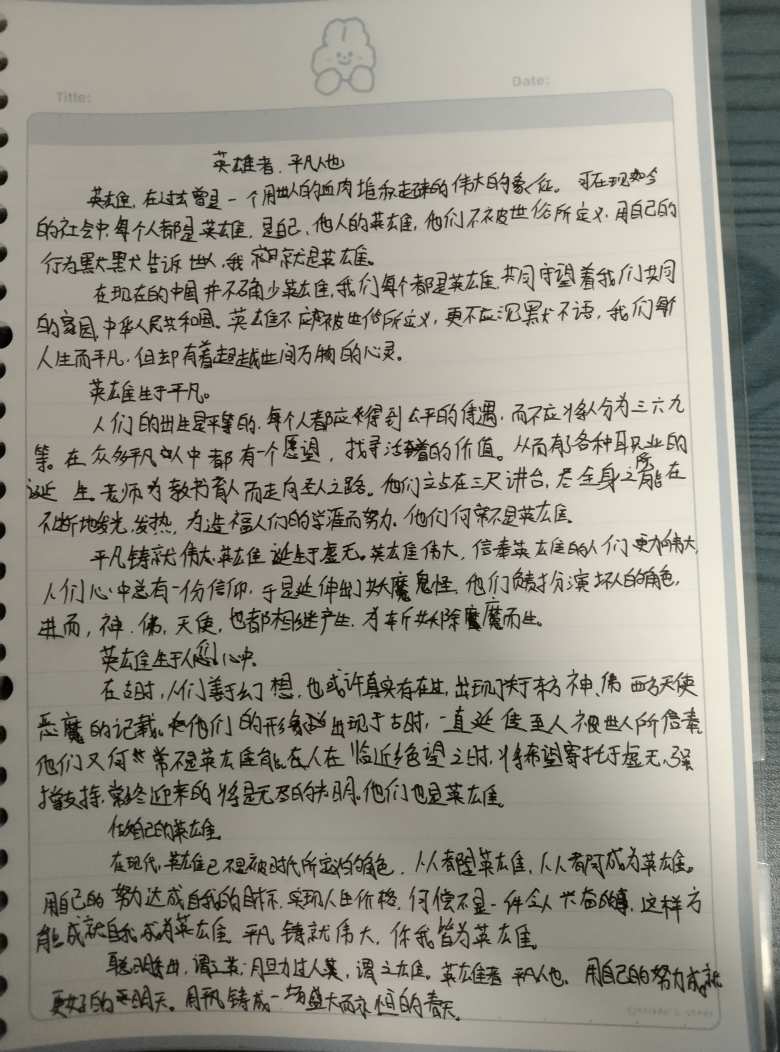 Title:
Date:
英雄者,平凡人也
英雄,在过去曾是一个用世人的血肉堆积起来的伟大的象征。可在现如今
的社会中,每个人都是英雄,是自己、他人的英雄,他们不被世俗所定义,用自己的
行为默默告诉世人,我就是英雄。
在现在的中国并不缺少英雄,我们每个都是英雄,共同守望着我们共同
的家园,中华人民共和国。英雄不应被世俗所定义,更不应沉默不语,我们
人生而平凡,但却有着超越世间万物的心灵。
英雄生于平凡。
人们的出生是平等的,每个人都应得到公平的待遇,而不应将人分为三六九
等。在众多平凡人中都有一个愿望,找寻活着的价值。从而有各种职业的
诞生。老师为教书育人而走向圣人之路。他们立在三尺讲台,尽全身之所能在
不断地发光,发热,为造福人们的学涯而努力,他们何尝不是英雄。
平凡铸就伟大,英雄诞生于虚无。英雄伟大,信奉英雄的人们更为伟大,
人们心中总有一份信仰,于是延伸出妖魔鬼怪,他们负责扮演坏人的角色,
进而,神、佛,天使,也都相继产生,为斩妖除魔而生。
英雄生于人心中。
在古时,人们善于幻想,也或许真实存在过,出现了关于东方神、佛 西方天使
恶魔的记载。他们的形象出现于古时,一直延续至今被世人所信奉
他们又何尝不是英雄呢,在人在临近绝望之时,将希望寄托于虚无,强
撑支持,最终迎来的将是无尽的光明。他们也是英雄。
做自己的英雄。
在现代,英雄已不是被时代所定义的角色,人人都是英雄,人人都可成为英雄。
用自己的努力达成自我的目标,实现人生价格,何偿不是一件令人兴奋的事,这样方
能成就自我,成为英雄,平凡铸就伟大,你我皆为英雄。
聪明秀出,谓之英;胆力过人,谓之雄。英雄者 平凡人也,用自己的努力成就
更好的明天。用平凡铸成一场盛大而永恒的春天。